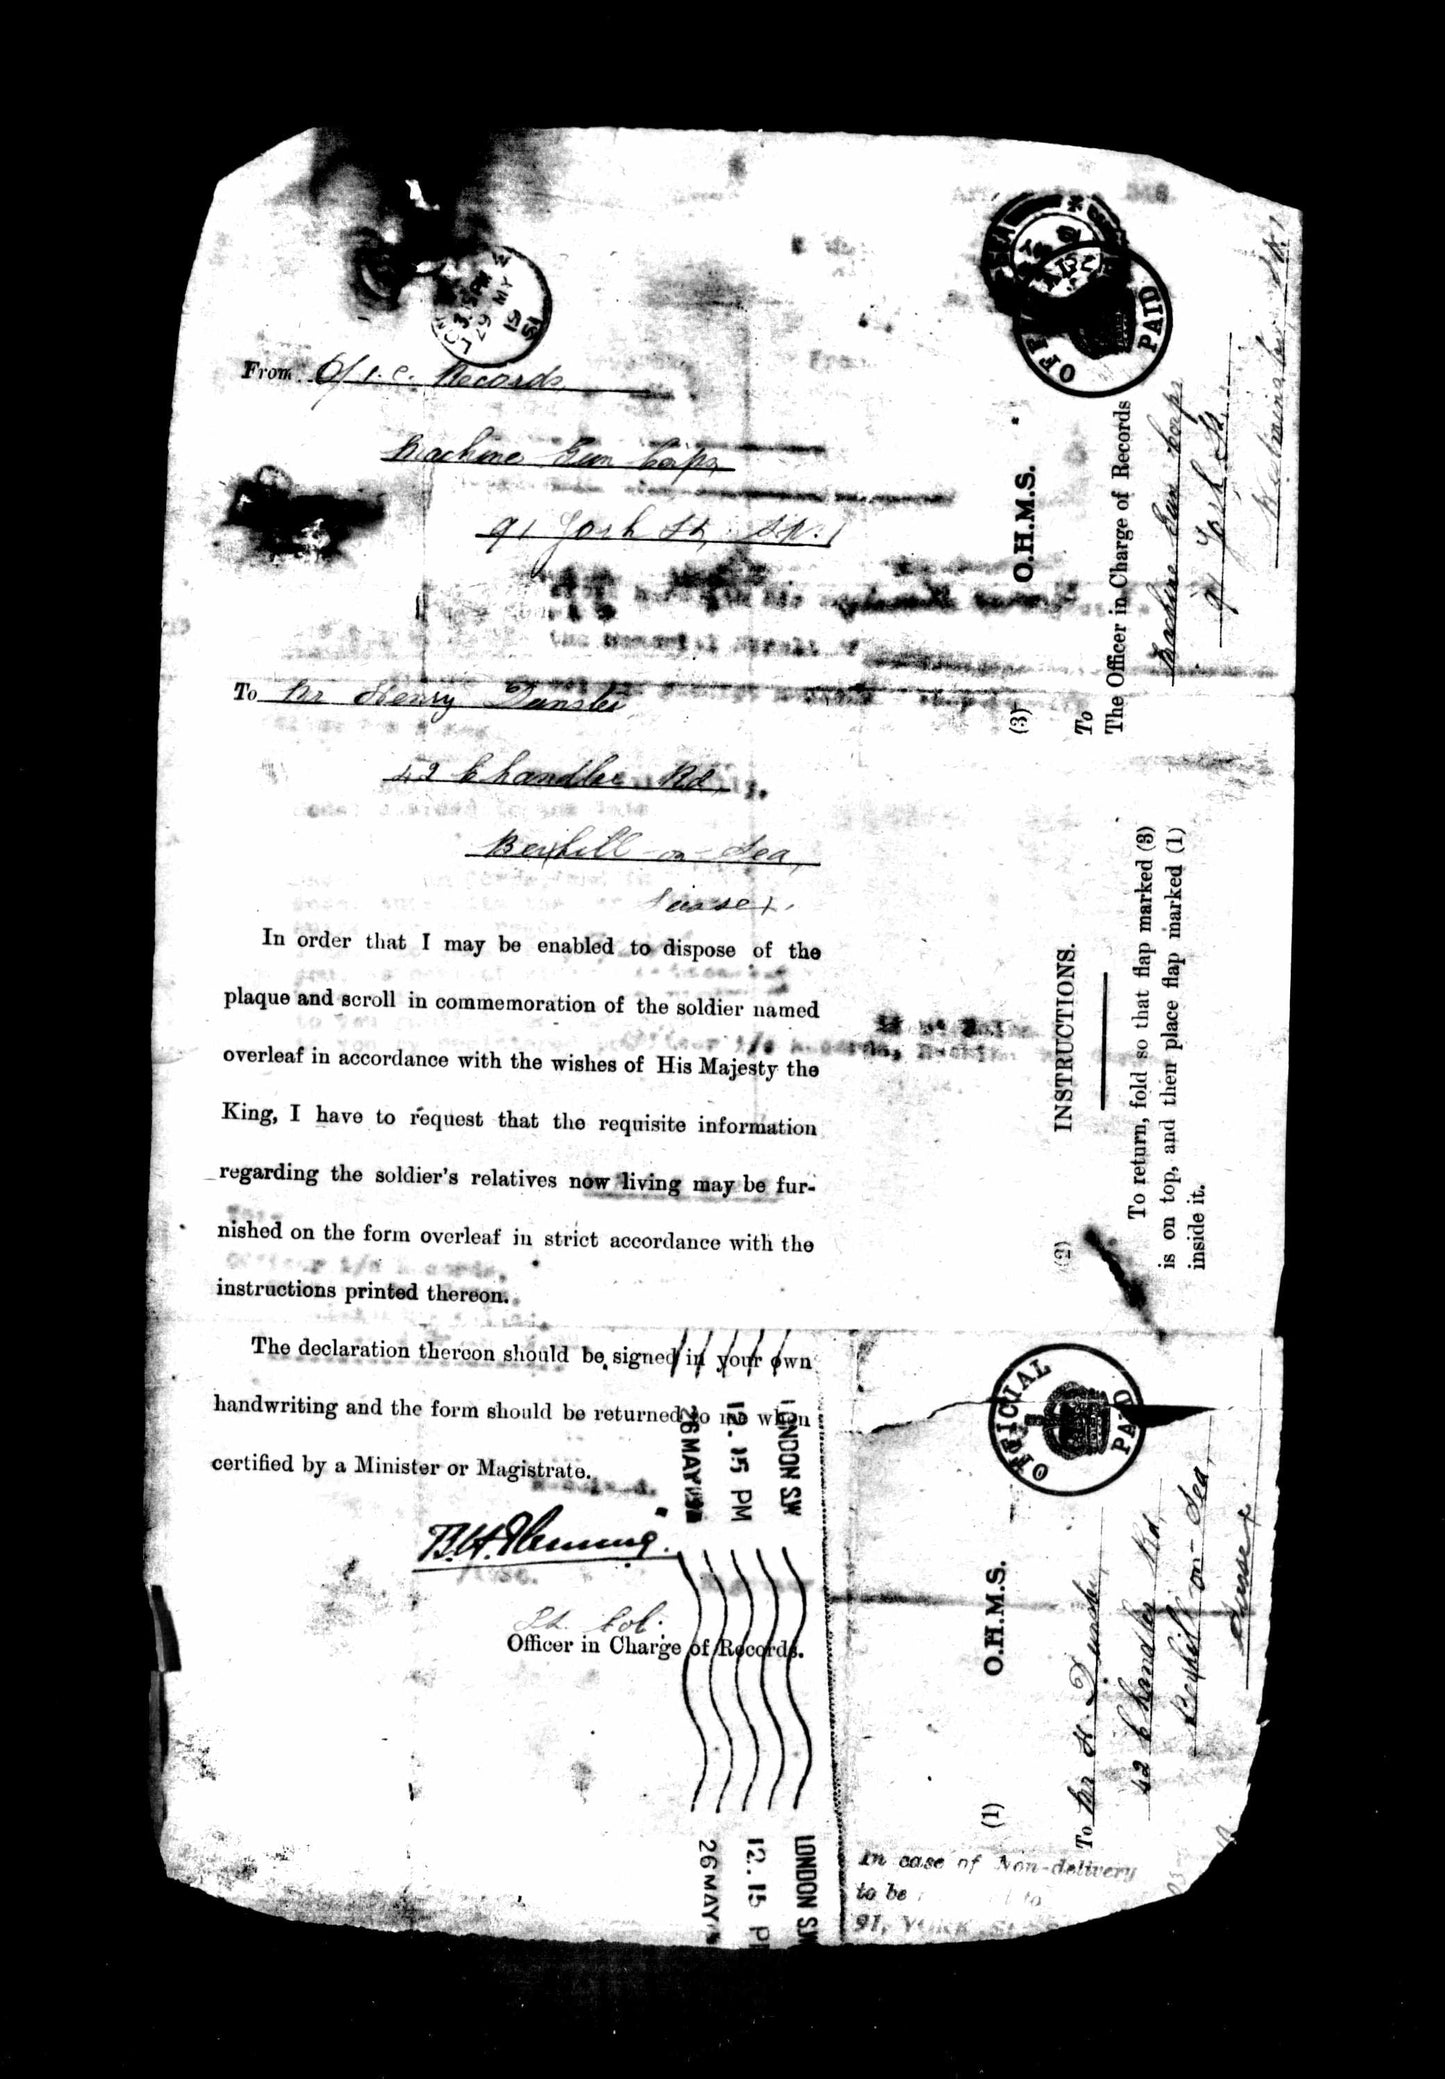 From O/i.c. Records
Machine Gun Corps,
91 York St, S.W.1
To Mr Henry Dunster
42 Chandler Rd,
Bexhill-on-Sea,
Sussex.
In order that I may be enabled to dispose of the
plaque and scroll in commemoration of the soldier named
overleaf in accordance with the wishes of His Majesty the
King, I have to request that the requisite information
regarding the soldier's relatives now living may be fur-
nished on the form overleaf in strict accordance with the
instructions printed thereon.
The declaration thereon should be signed in your own
handwriting and the form should be returned to me when
certified by a Minister or Magistrate.
B.H. Fleming.
Lt. Col.
Officer in Charge of Records.
LONDON S.W
12.15 PM
26 MAY
LONDON S.W
12.15 P
26 MAY
29 MY
OFFICIAL
PAID
(3)
O.H.M.S.
To
The Officer in Charge of Records
Machine Gun Corps
91 York St,
Westminster S.W.1
(2)
INSTRUCTIONS.
To return, fold so that flap marked (3)
is on top, and then place flap marked (1)
inside it.
OFFICIAL
PAID
(1)
O.H.M.S.
To Mr H. Dunster,
42 Chandler Rd,
Bexhill-on-Sea,
Sussex
In case of Non-delivery
to be to
91, YORK